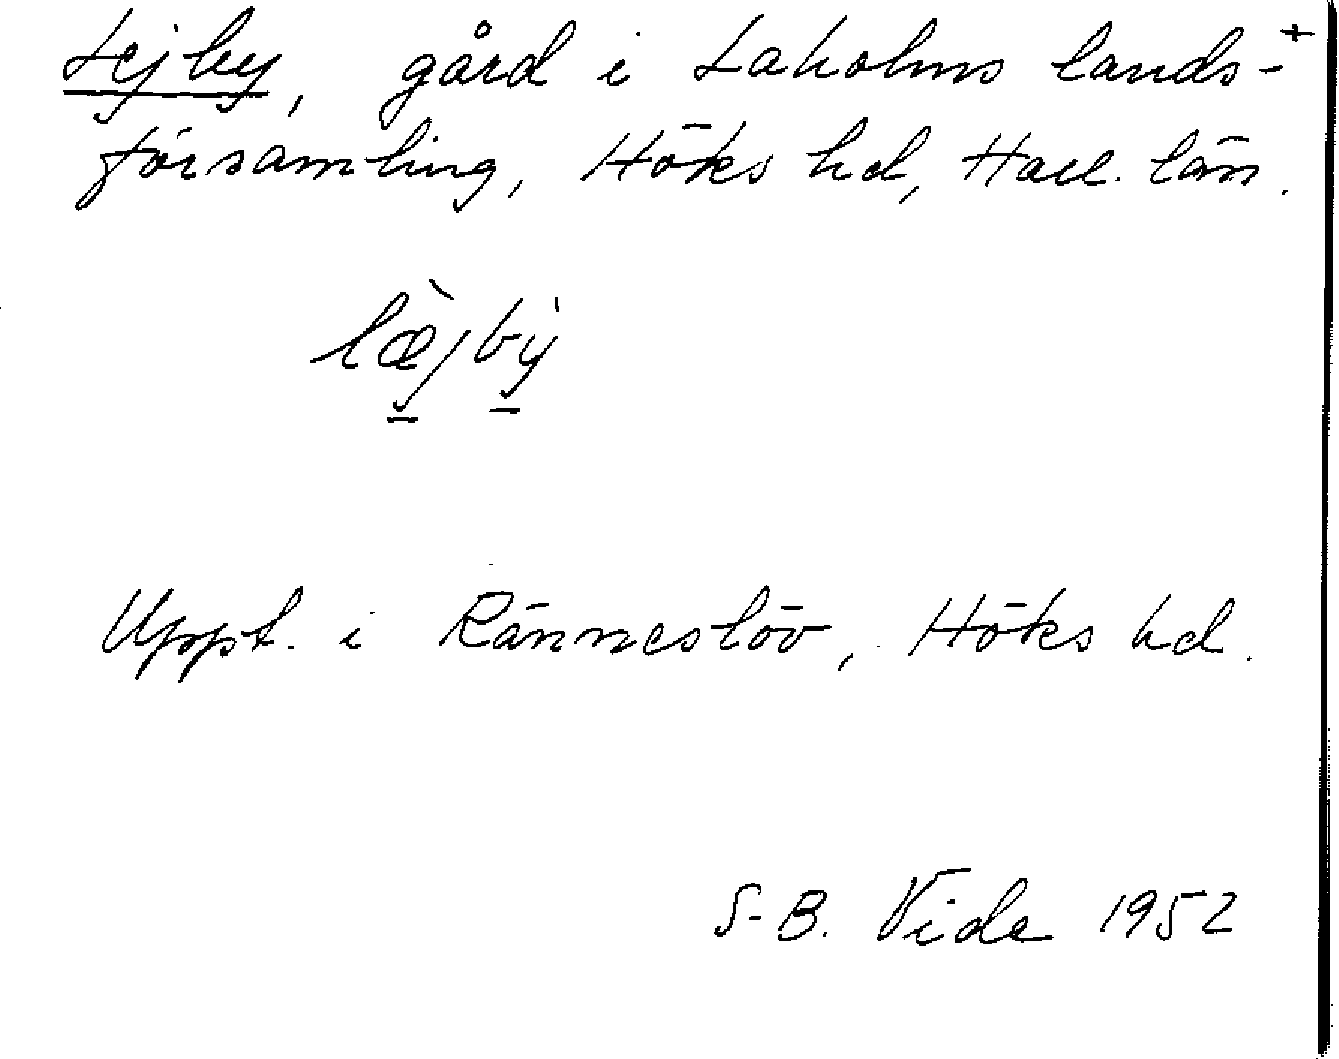 Lejby, gård i Laholms lands-+
församling, Höks hd, Hall. län.
læ̀jbẏ
Uppt. i Ränneslöv, Höks hd.
S-B. Vide 1952